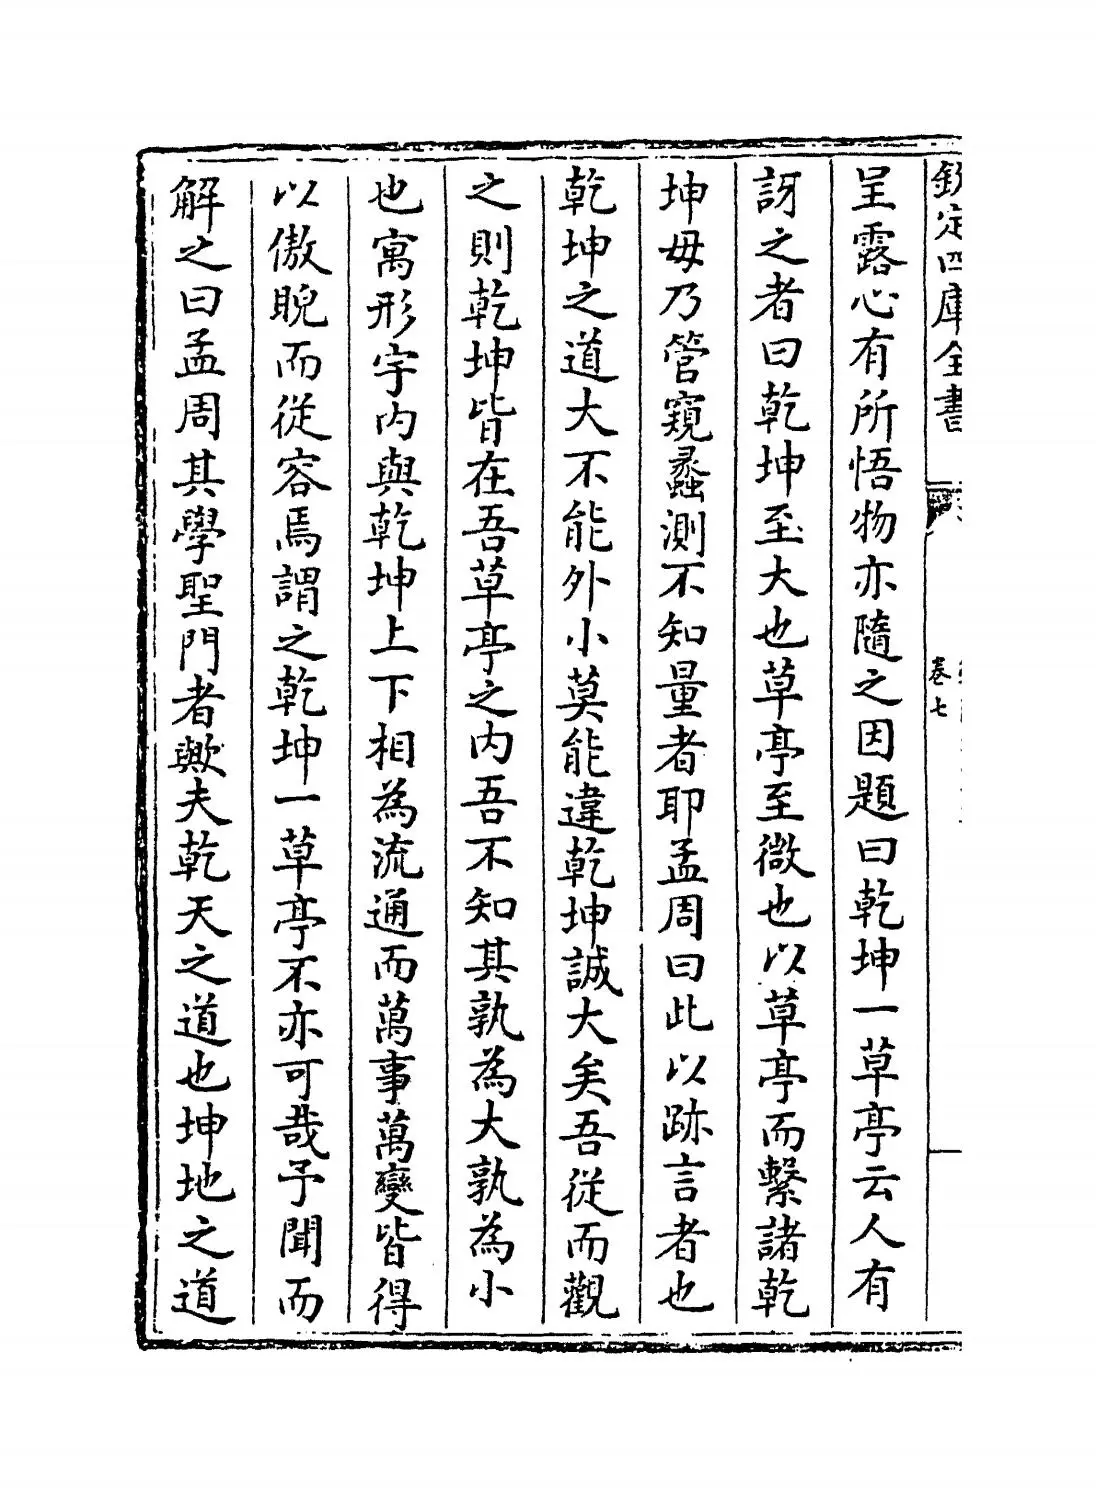 欽定四庫全書
卷七
呈露心有所悟物亦隨之因題曰乾坤一草亭云人有
訝之者曰乾坤至大也草亭至微也以草亭而繫諸乾
坤毋乃管窺蠡測不知量者耶孟周曰此以跡言者也
乾坤之道大不能外小莫能違乾坤誠大矣吾從而觀
之則乾坤皆在吾草亭之内吾不知其孰為大孰為小
也寓形宇内與乾坤上下相為流通而萬事萬變皆得
以傲睨而從容焉謂之乾坤一草亭不亦可哉予聞而
解之曰孟周其學聖門者歟夫乾天之道也坤地之道